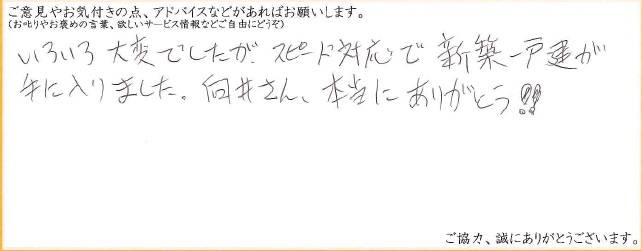 ご意見やお気付きの点、アドバイスなどがあればお願いします。
(お叱りやお褒めの言葉、欲しいサービス情報などご自由にどうぞ)
いろいろ大変でしたが、スピード対応で新築一戸建が
手に入りました。向井さん、本当にありがとう!!
ご協力、誠にありがとうございます。